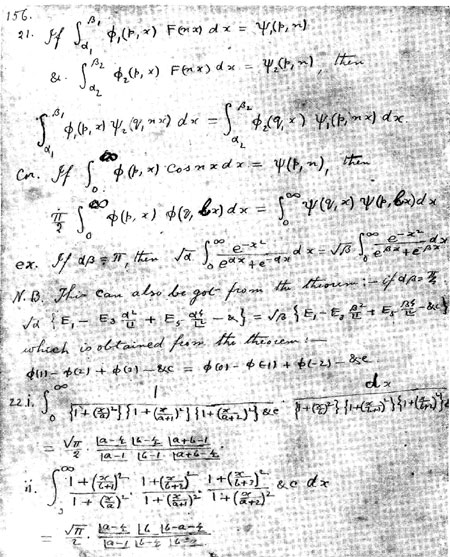 156.
21. If ∫_{α₁}^{β₁} φ₁(p, x) F(nx) dx = ψ₁(p, n)
&. ∫_{α₂}^{β₂} φ₂(p, x) F(nx) dx = ψ₂(p, n), then
∫_{α₁}^{β₁} φ₁(p, x) ψ₂(q, nx) dx = ∫_{α₂}^{β₂} φ₂(q, x) ψ₁(p, nx) dx.
Cor. If ∫_0^∞ φ(p, x) Cos nx dx = ψ(p, n), then
π/2 ∫_0^∞ φ(p, x) φ(q, bx) dx = ∫_0^∞ ψ(q, x) ψ(p, bx) dx
ex. If αβ = π, then √α ∫_0^∞ e^{-x²}/(e^{αx} + e^{-αx}) dx = √β ∫_0^∞ e^{-x²}/(e^{βx} + e^{-βx}) dx
N.B. This can also be got from the theorem :— if αβ =
√α {E₁ - E₃ + E₅ - &} = √β {E₁ - E₃ + E₅ - &c}
which is obtained from the theorem :—
φ(1) - φ(2) + φ(3) - &c = φ(0) - φ(-1) + φ(-2) - &c
22.i. ∫_0^∞ 1/({1+(x/a)²}{1+(x/(a+1))²}{1+(x/(a+2))²} &c) · dx/({1+(x/b)²}{1+(x/(b+1))²}{1+(x/(b+2))²} &c)
= √π/2 · |a-½ |b-½ |a+b-1 / |a-1 |b-1 |a+b-½ .
ii. ∫_0^∞ (1+(x/(b+1))²)/(1+(x/a)²) · (1+(x/(b+2))²)/(1+(x/(a+1))²) · (1+(x/(b+3))²)/(1+(x/(a+2))²) &c dx
= √π/2 · |a-½ |b |b-a-½ / |a-1 |b-½